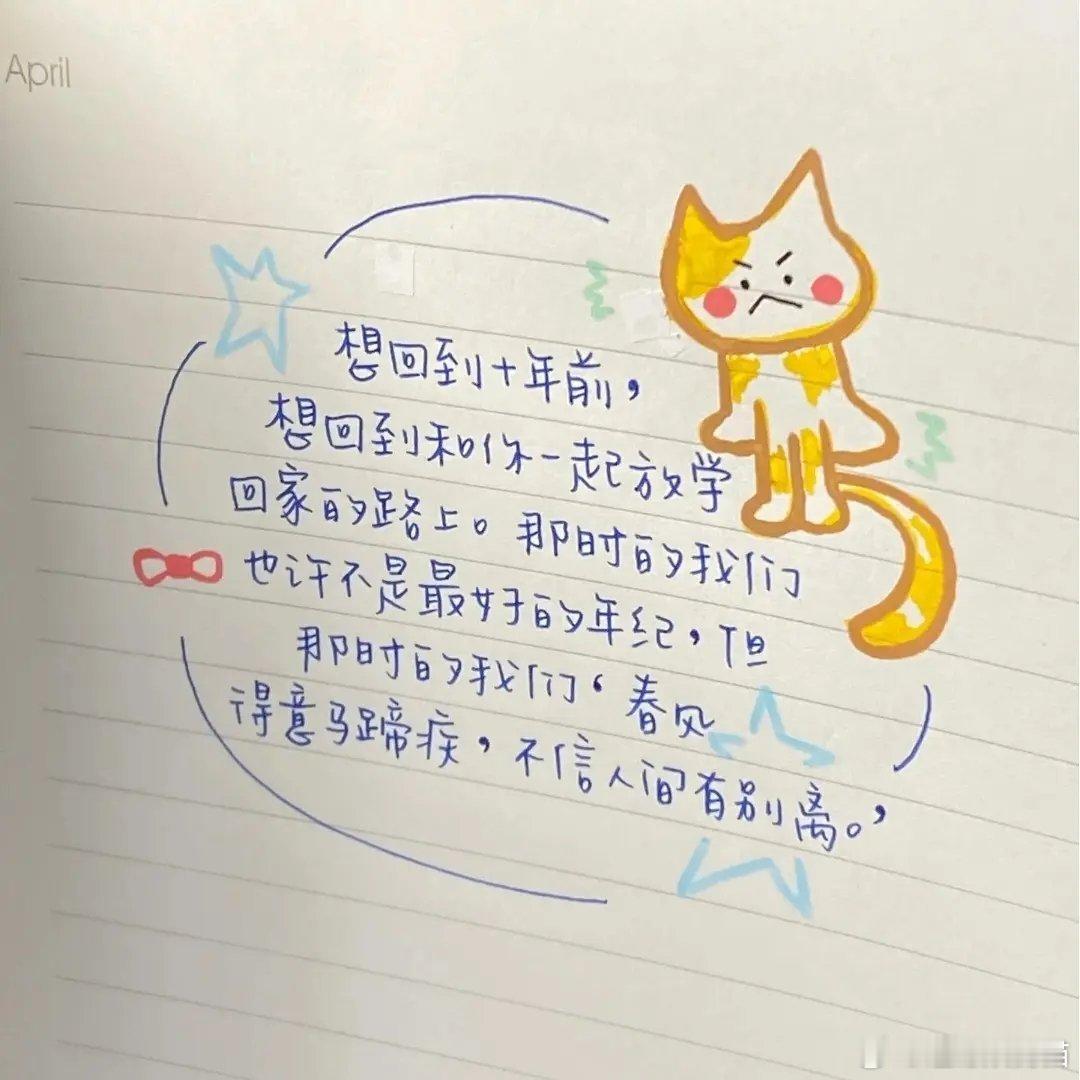 April
想回到十年前，
想回到和你一起放学
回家的路上。那时的我们
也许不是最好的年纪，但
那时的我们‘春风
得意马蹄疾，不信人间有别离。’